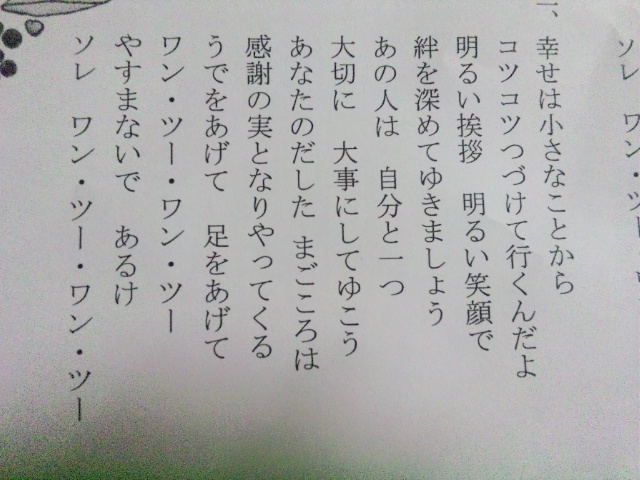 ソレ　ワン・ツー・ワ
一、幸せは小さなことから
コツコツつづけて行くんだよ
明るい挨拶　明るい笑顔で
絆を深めてゆきましょう
あの人は　自分と一つ
大切に　大事にしてゆこう
あなたのだした　まごころは
感謝の実となりやってくる
うでをあげて　足をあげて
ワン・ツー・ワン・ツー
やすまないで　あるけ
ソレ　ワン・ツー・ワン・ツー